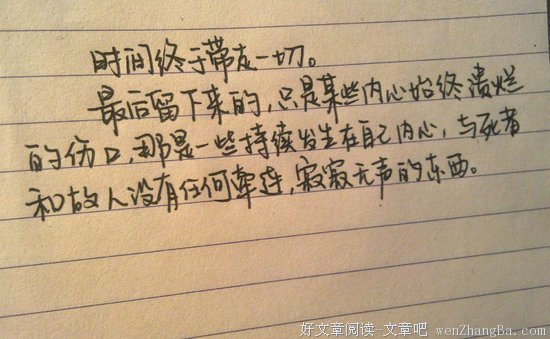 时间终于带走一切。
最后留下来的,只是某些内心始终溃烂
的伤口,那是一些持续发生在自己内心,与死者
和故人没有任何牵连,寂寂无声的东西。
好文章阅读-文章吧 wenZhangBa.com